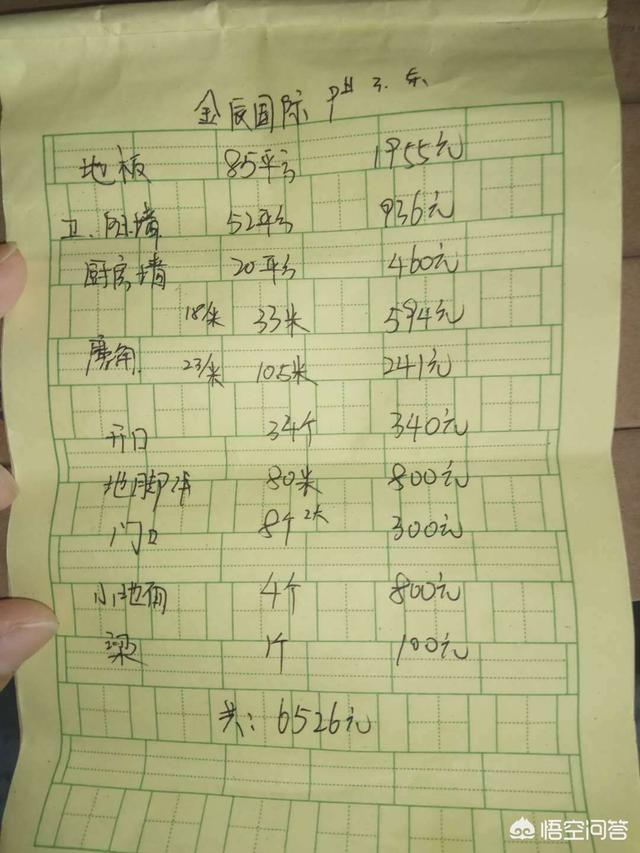 金辰国际
地板 85平方 1955元
卫.阳墙 52平方 936元
厨房墙 20平方 460元
18/米 33米 594元
磨角 23/米 10.5米 241元
开口 34个 340元
地脚线 80米 800元
门口 8个 2大 300元
小地面 4个 800元
梁 1个 100元
共: 6526元
悟空问答